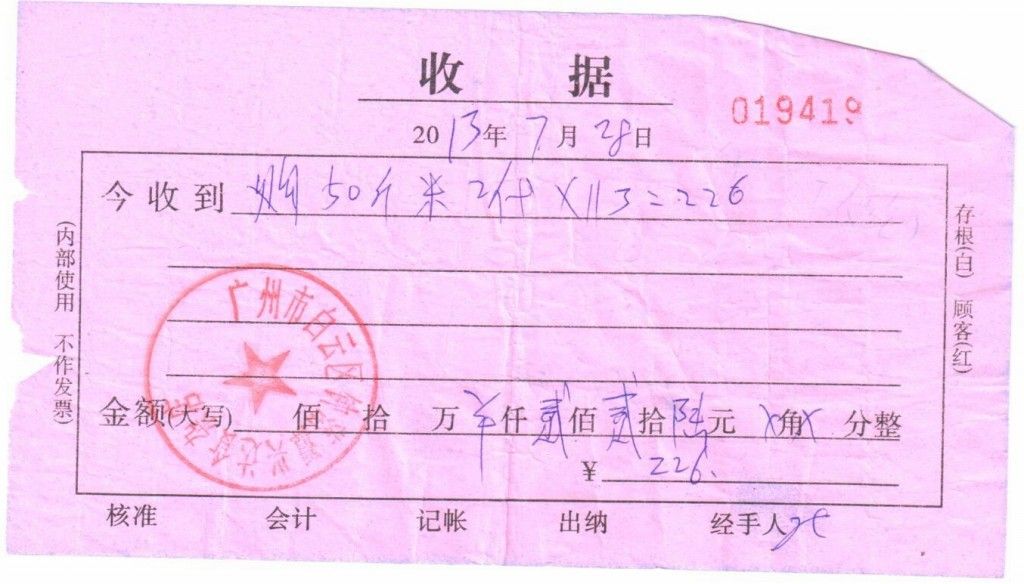 收 据
019419
2013年7月28日
今收到 购50斤米2代×113=226
金额(大写) 佰 拾 万 仟贰佰贰拾陆元×角×分整
¥ 226.
核准 会计 记帐 出纳 经手人
(内部使用 不作发票)
存根(白) 顾客(红)
广州市白云区